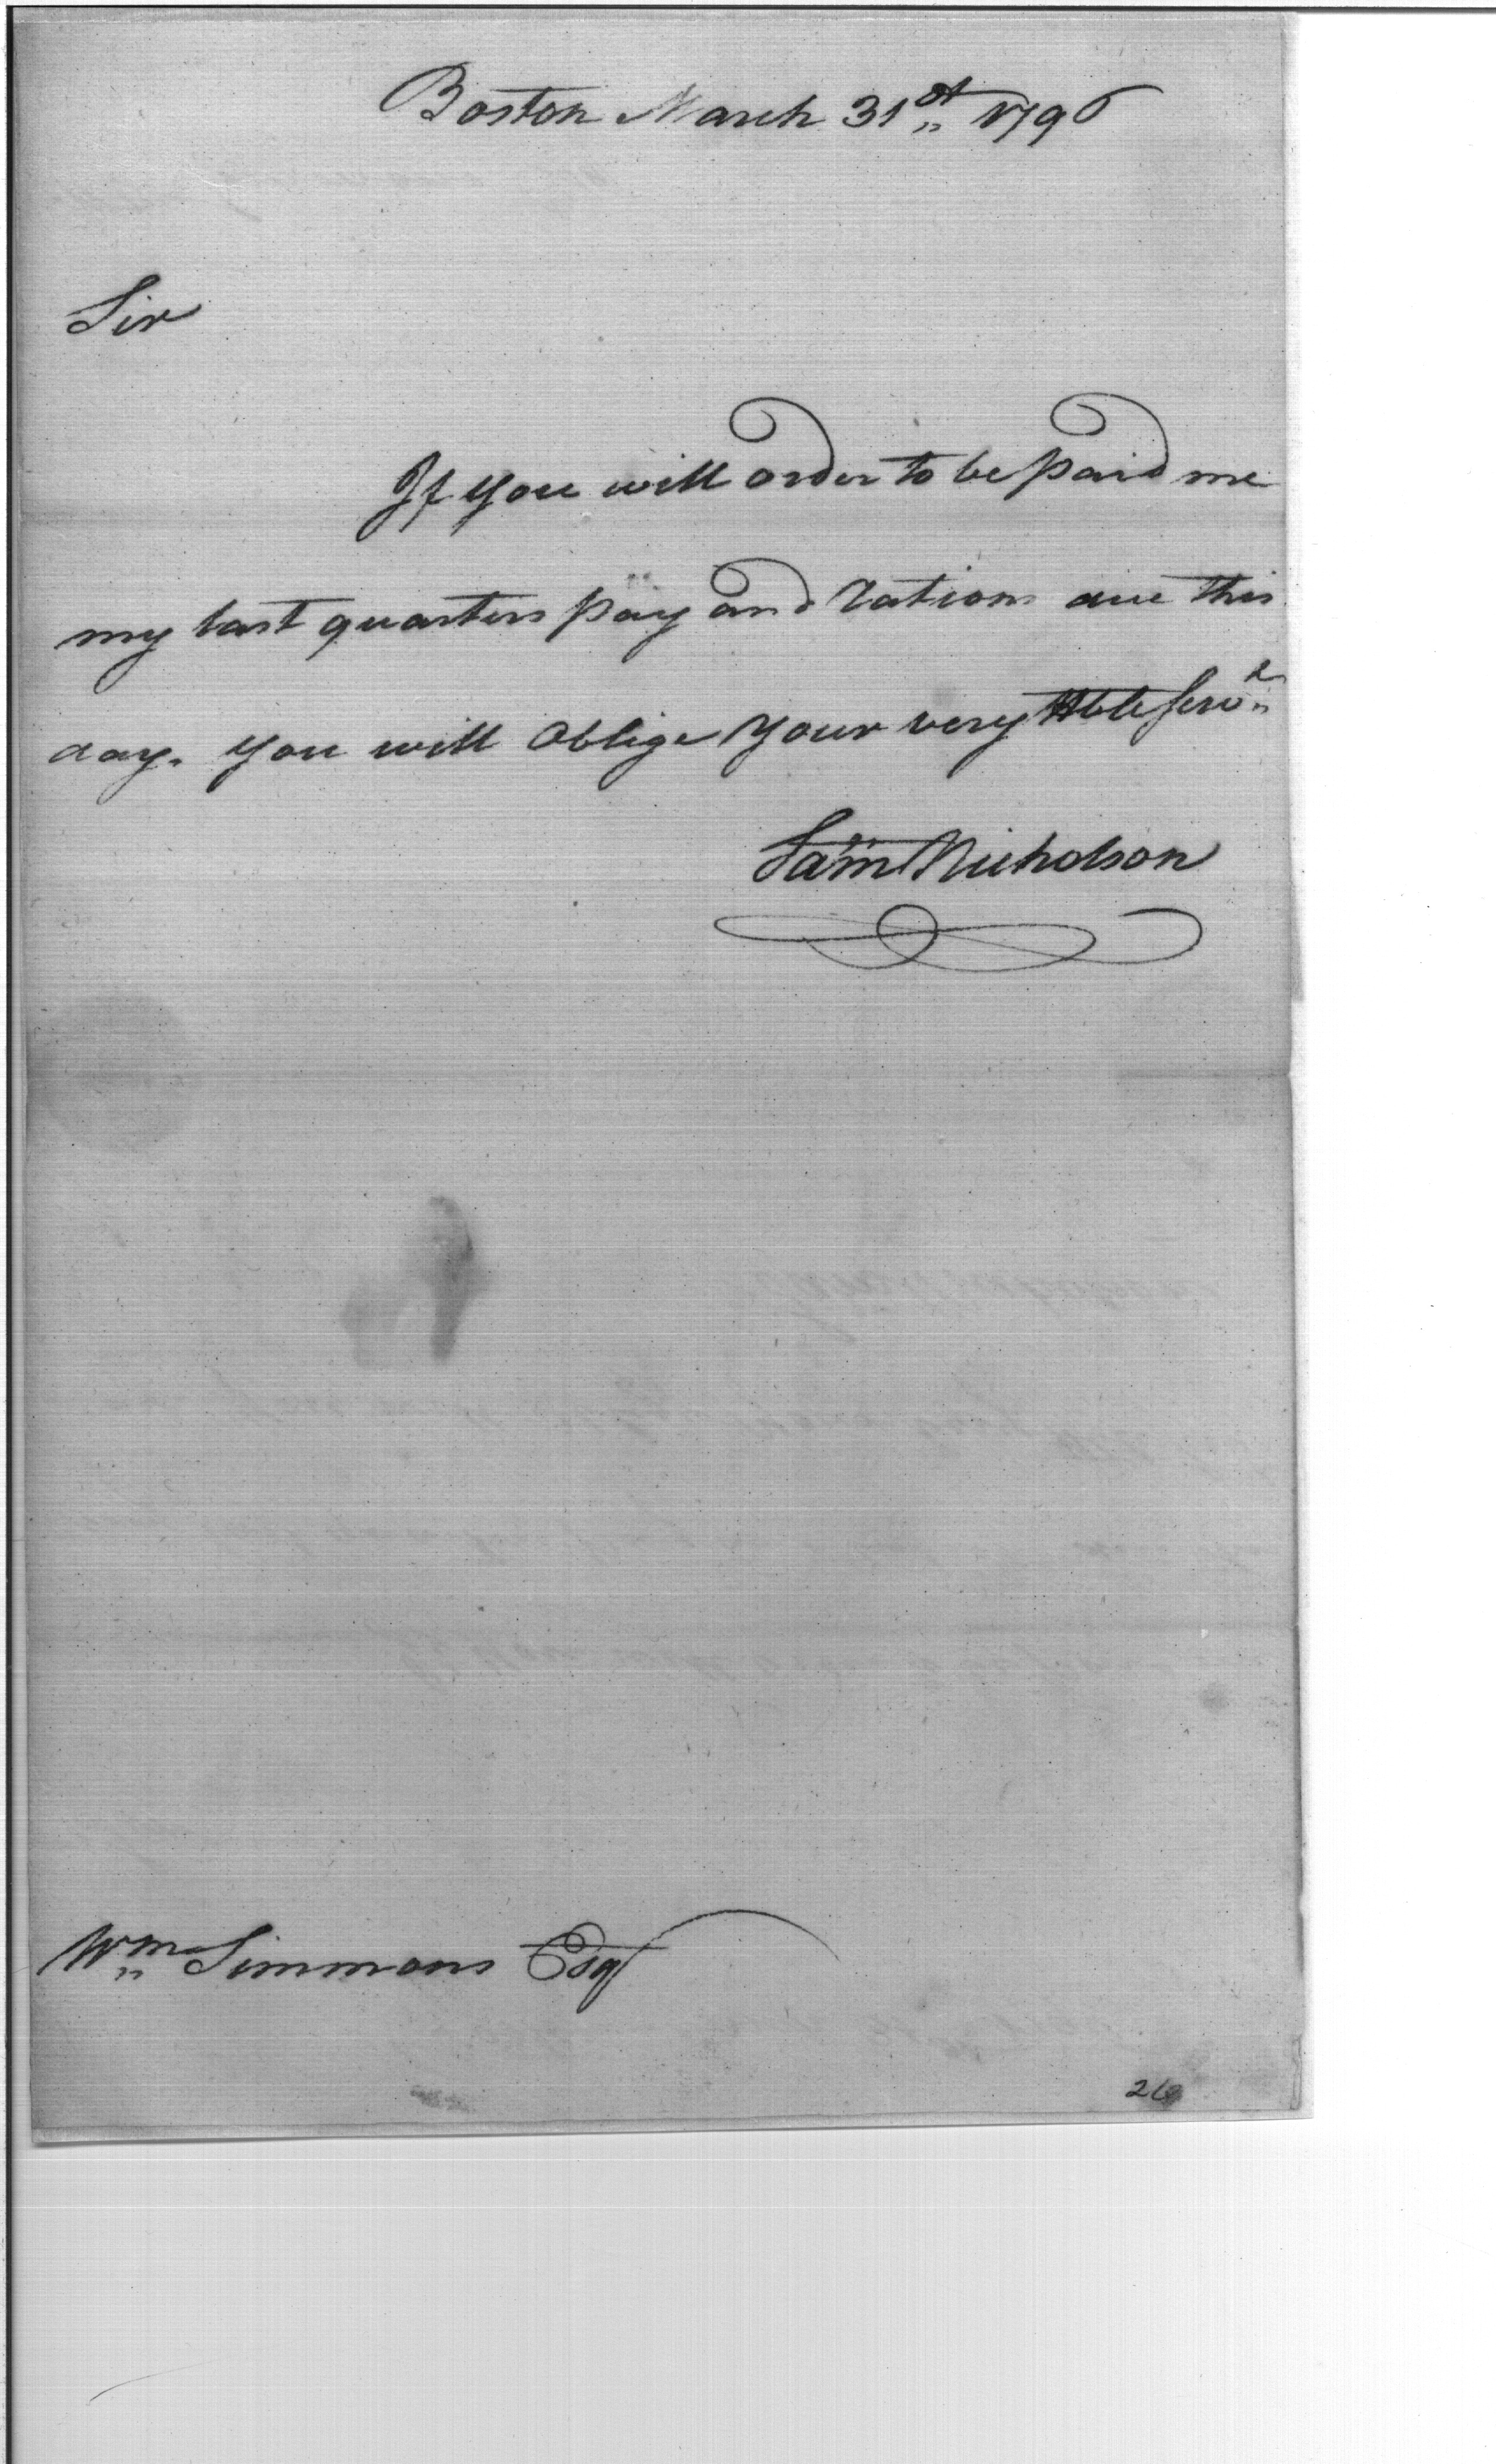 Boston March 31st 1796
Sir
If you will order to be paid me
my last quarters pay and rations due this
day. you will oblige your very Hble Servt
Sam Nicholson
Wm Simmons Esq
26